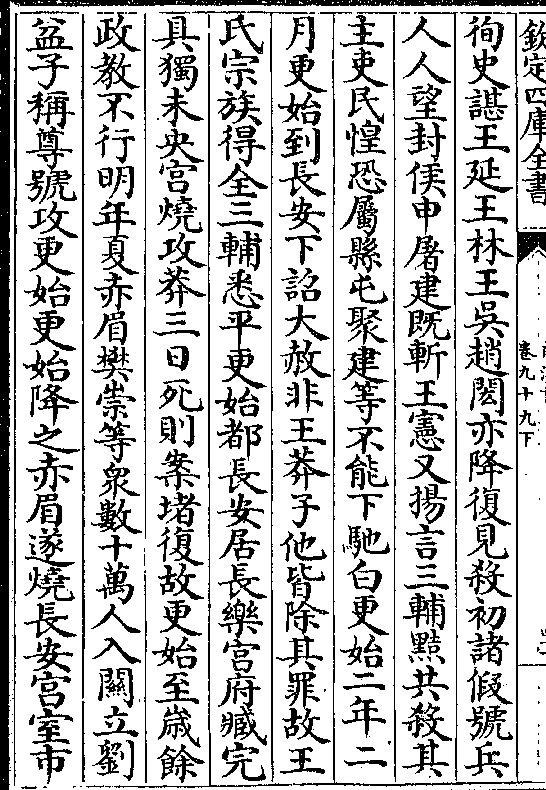 欽定四庫全書
卷九十九下
徇史諶王延王林王吳趙閎亦降復見殺初諸假號兵
人人望封侯申屠建既斬王憲又揚言三輔黠共殺其
主吏民惶恐屬縣屯聚建等不能下馳白更始二年二
月更始到長安下詔大赦非王莽子他皆除其罪故王
氏宗族得全三輔悉平更始都長安居長樂宮府臧完
具獨未央宮燒攻莽三日死則案堵復故更始至歲餘
政教不行明年夏赤眉樊崇等衆數十萬人入關立劉
盆子稱尊號攻更始更始降之赤眉遂燒長安宮室市